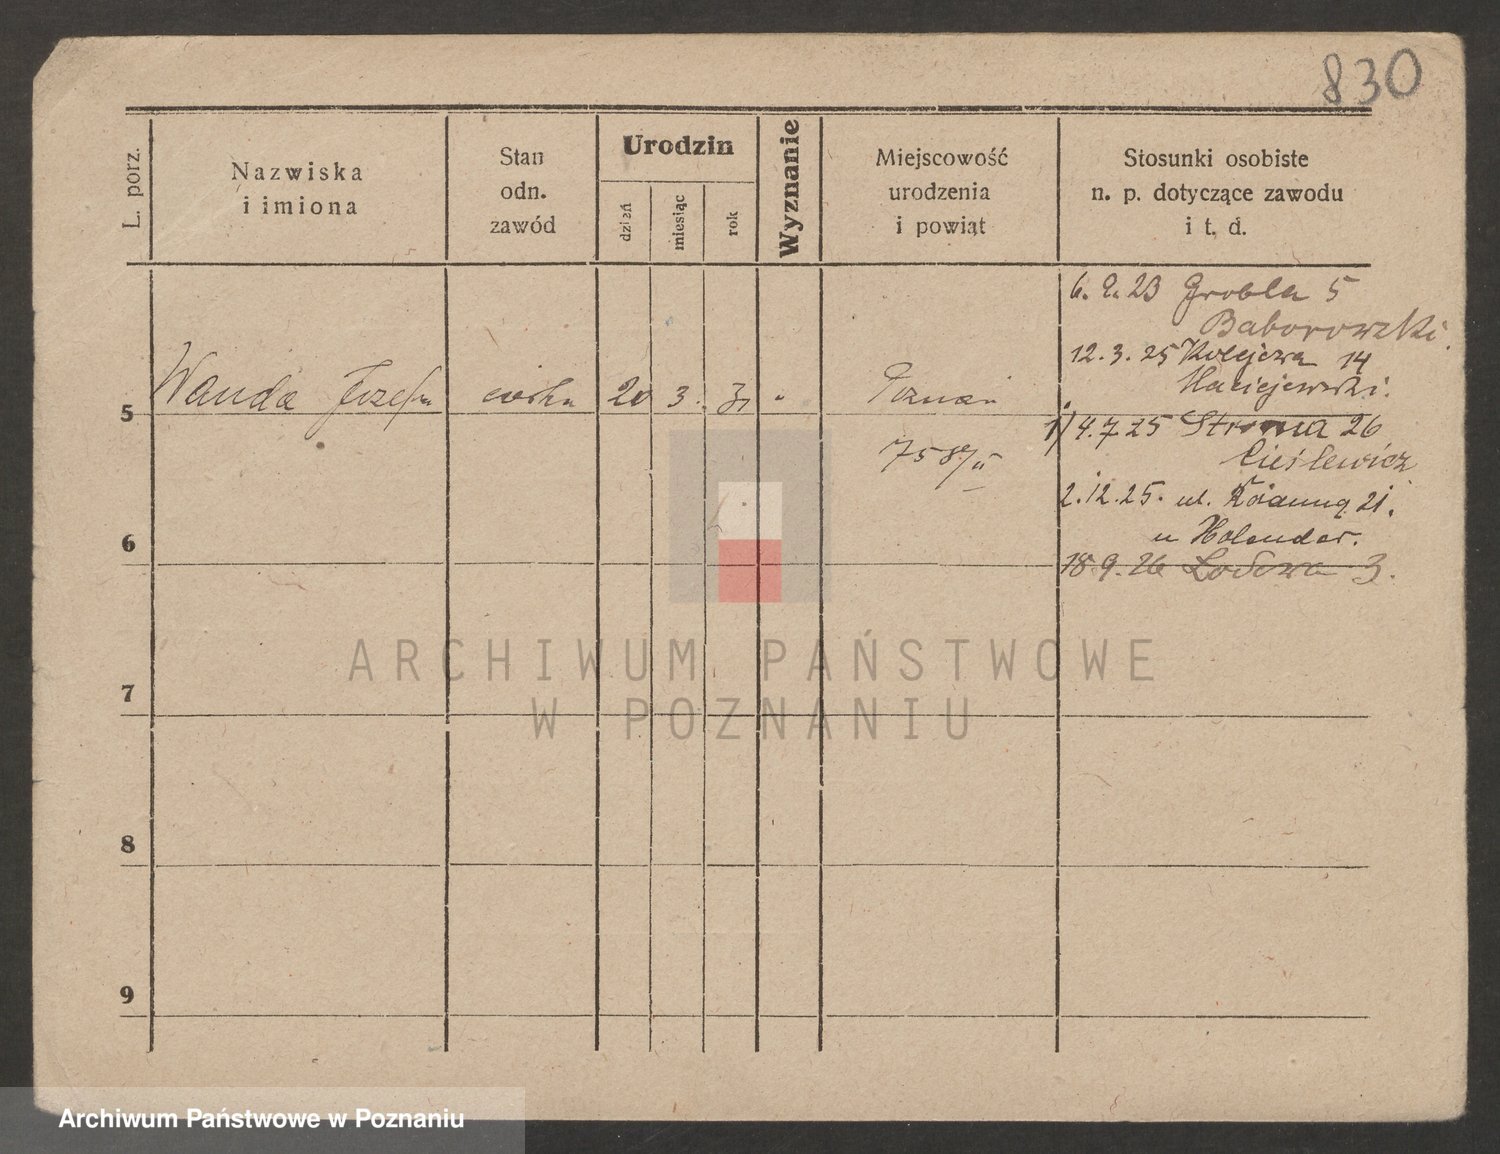 830
L. porz.
Nazwiska
i imiona
Stan
odn.
zawód
Urodzin
dzień
miesiąc
rok
Wyznanie
Miejscowość
urodzenia
i powiąt
Stosunki osobiste
n. p. dotyczące zawodu
i t. d.
6. 9. 23 Grobla 5
Baborowski.
12. 3. 25 Kolejowa 14
Maciejewski.
5 Wanda Józefa córka 20 3. 31 " Poznań
1) 4. 7. 25 Stroma 26
Cieślewicz
7587/II
2. 12. 25. ul. Różanna 21.
u Holender.
6
18. 9. 26 Łodowa 3.
ARCHIWUM PAŃSTWOWE
W POZNANIU
7
8
9
Archiwum Państwowe w Poznaniu